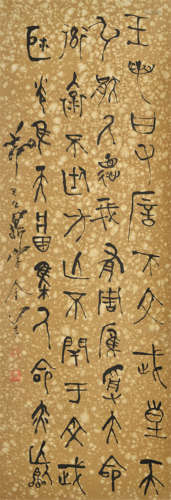 王若曰父厝不文武皇天
弘厭厥德我有周膺受大命
率懷不廷方亡不閈于文武
耿光唯天集厥命亦唯
節毛公鼎